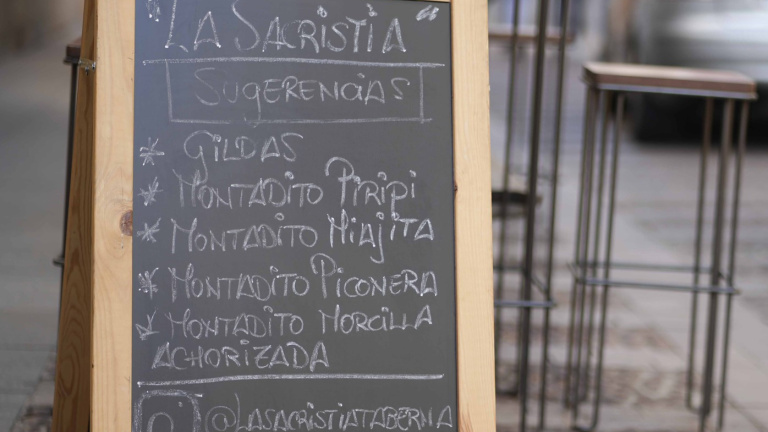 La Sacristía
Sugerencias
* Gildas
* Montadito Piripi
* Montadito Miajita
* Montadito Piconera
* Montadito Morcilla
Achorizada
@Lasacristiataberna